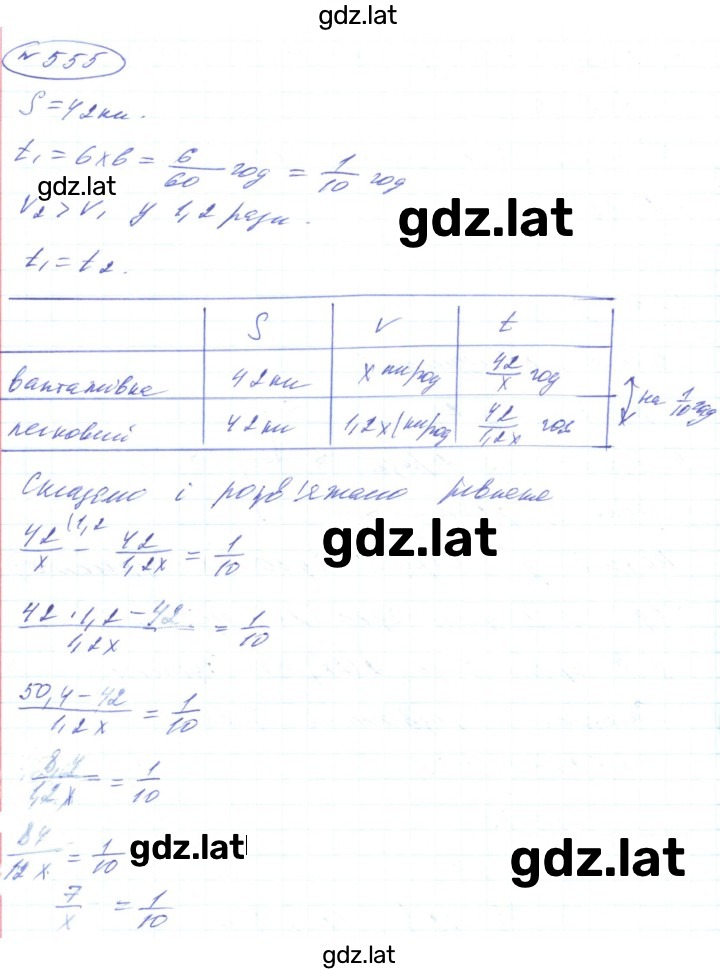 gdz.lat
№ 555
S = 42 км.
t₁ = 6 хв = 6/60 год = 1/10 год
gdz.lat
V₂ > V₁ у 1,2 рази.
gdz.lat
t₁ = t₂.
S V t
вантажівка 42 км x км/год 42/x год
на 1/10 год
легковий 42 км 1,2x км/год 42/1,2x год
Складемо і розв'яжемо рівняння
42/x (1,2 − 42/1,2x = 1/10
gdz.lat
42·1,2 − 42/1,2x = 1/10
50,4 − 42/1,2x = 1/10
8,4/1,2x = 1/10
84/12x = 1/10
gdz.lat
gdz.lat
7/x = 1/10
gdz.lat